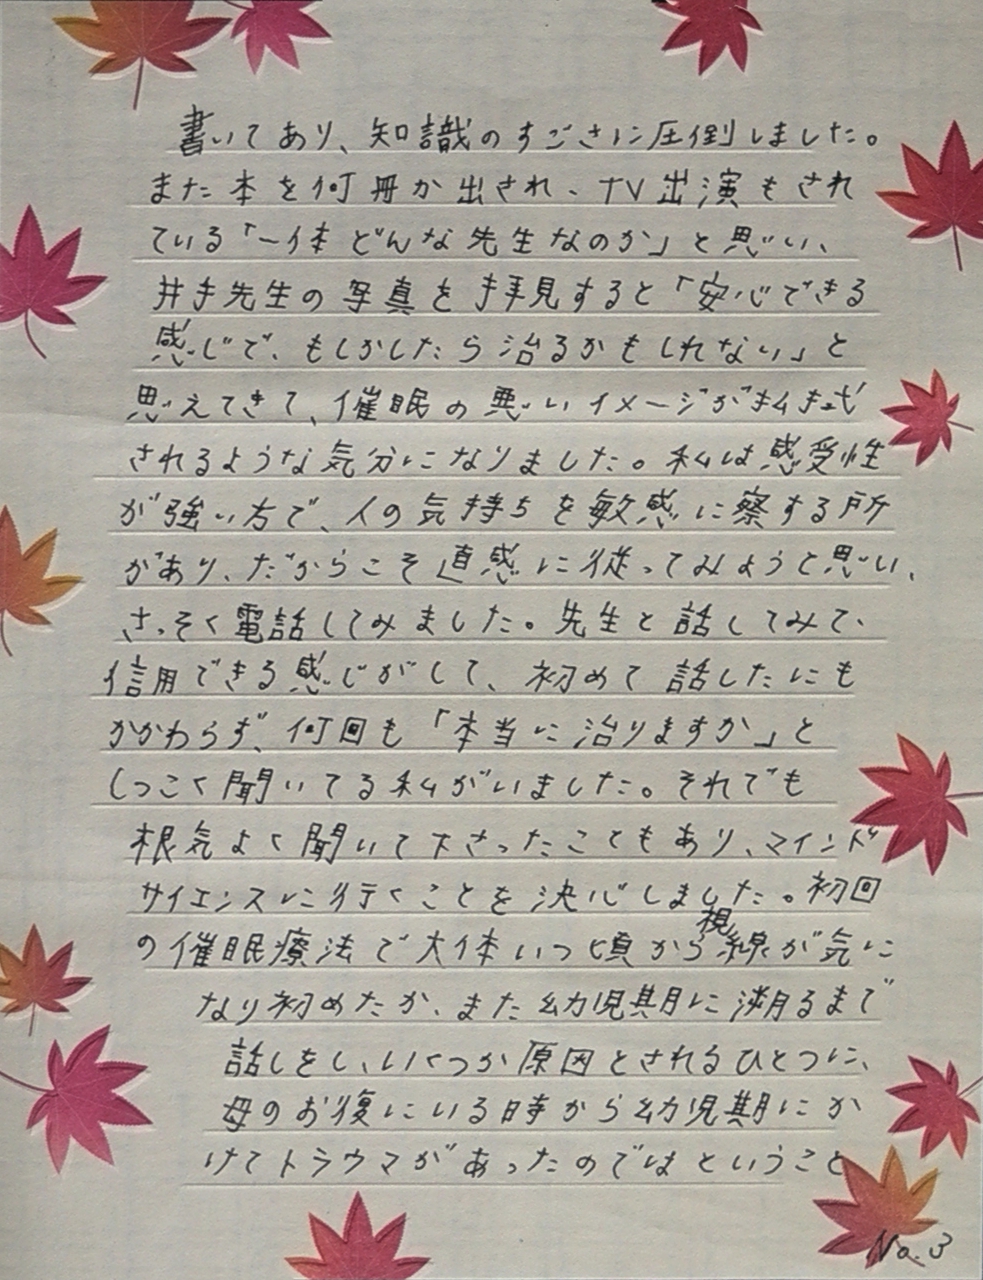 書いてあり、知識のすごさに圧倒しました。
また本を何冊か出され、TV出演もされ
ている「一体どんな先生なのか」と思い、
井手先生の写真を拝見すると「安心できる
感じで、もしかしたら治るかもしれない」と
思えてきて、催眠の悪いイメージが払拭
されるような気分になりました。私は感受性
が強い方で、人の気持ちを敏感に察する所
があり、だからこそ直感に従ってみようと思い、
さっそく電話してみました。先生と話してみて、
信用できる感じがして、初めて話したにも
かかわらず、何回も「本当に治りますか」と
しつこく聞いてる私がいました。それでも
根気よく聞いて下さったこともあり、マインド
サイエンスに行くことを決心しました。初回
の催眠療法で大体いつ頃から視線が気に
なり初めたか、また幼児期に溯るまで
話しをし、いくつか原因とされるひとつに、
母のお復にいる時から幼児期にか
けてトラウマがあったのではということ
No.3